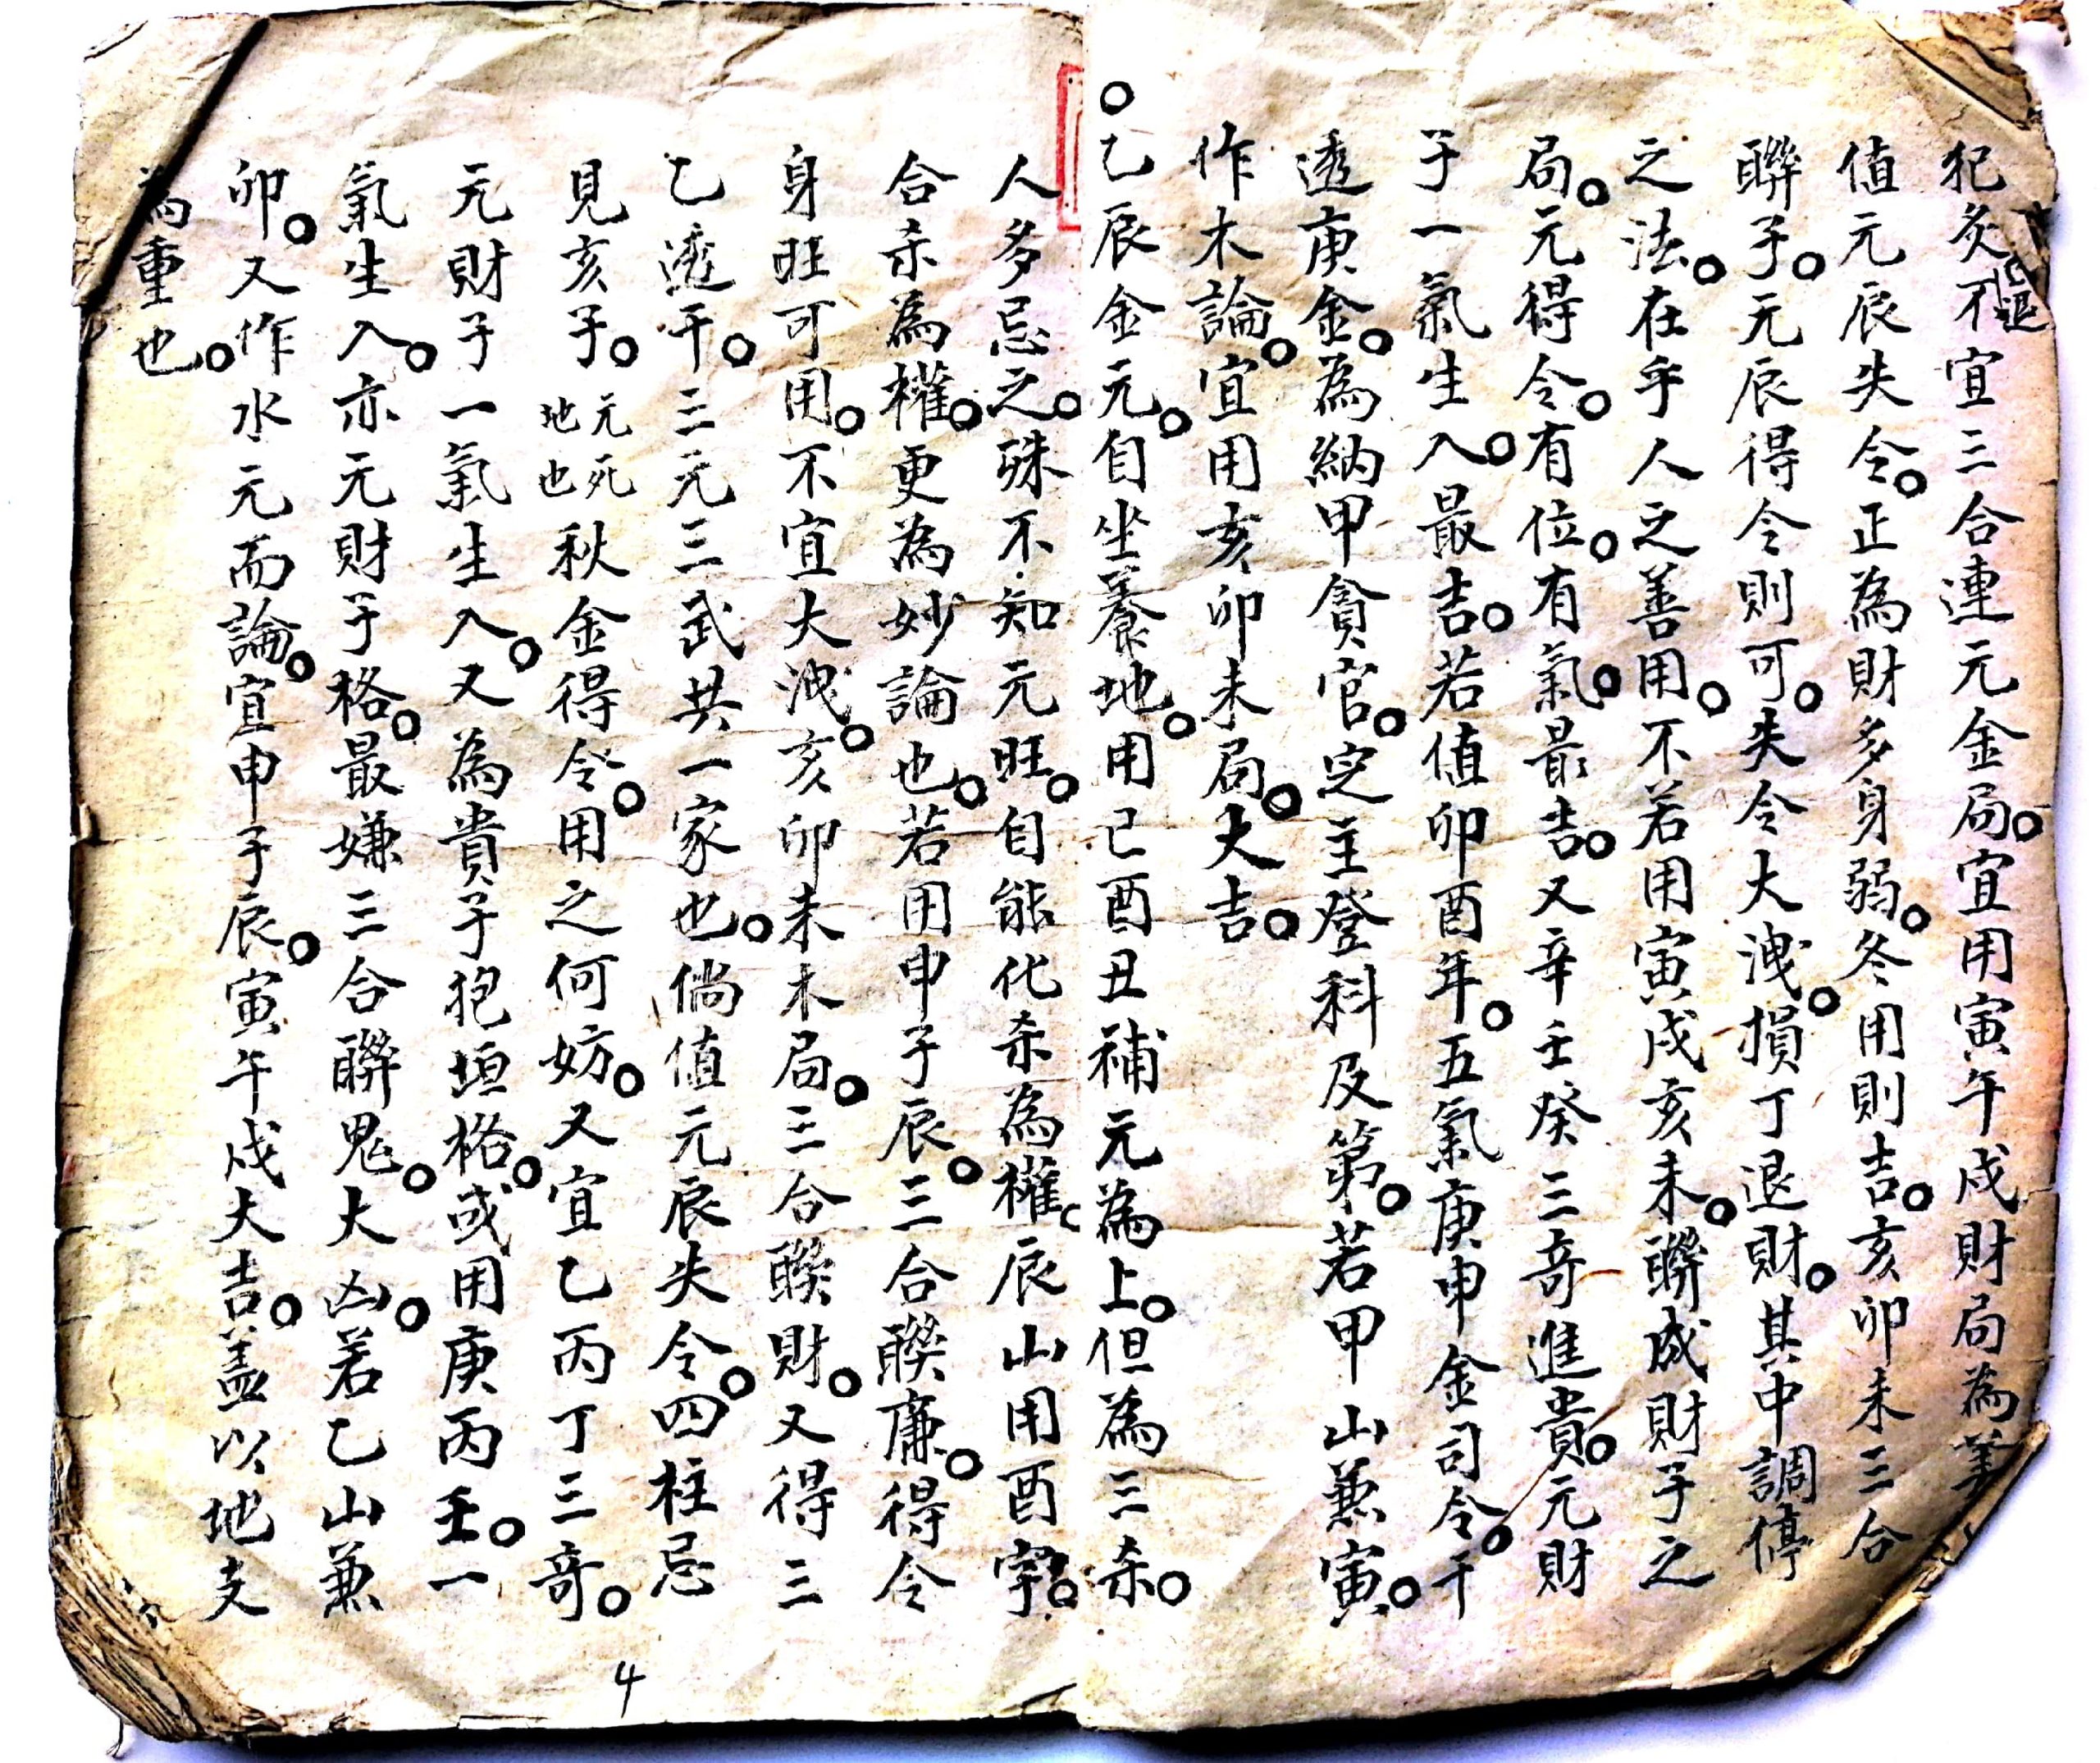 犯炙退不宜三合連元金局。宜用寅午戌財局為美
值元辰失令。正為財多身弱。冬用則吉。亥卯未三合
聯子。元辰得令則可。失令大洩。損丁退財。其中調停
之法。在乎人之善用。不若用寅戌亥未。聯成財子之
局。元得令。有位。有氣。最吉。又辛壬癸三奇進貴。元財
子一氣生入。最吉。若值卯酉年。五氣庚申金司令。干
透庚金。為納甲貪官。定主登科及第。若甲山兼寅。
作木論。宜用亥卯未局。大吉。
。乙辰金元。自坐養地。用巳酉丑補元為上。但為三杀。
人多忌之。殊不知元旺。自能化杀為權。辰山用酉字。
合杀為權。更為妙論也。若用申子辰。三合聯廉。得令
身旺可用。不宜大洩。亥卯未木局。三合聯財。又得三
乙透干。三元三武共一家也。倘值元辰失令。四柱忌
見亥子。元死地也秋金得令。用之何妨。又宜乙丙丁三奇。
元財子一氣生入。又為貴子抱垣格。或用庚丙壬。一
氣生入。亦元財子格。最嫌三合聯鬼。大凶。若乙山兼
卯。又作水元而論。宜申子辰。寅午戌大吉。盖以地支
為重也。
4